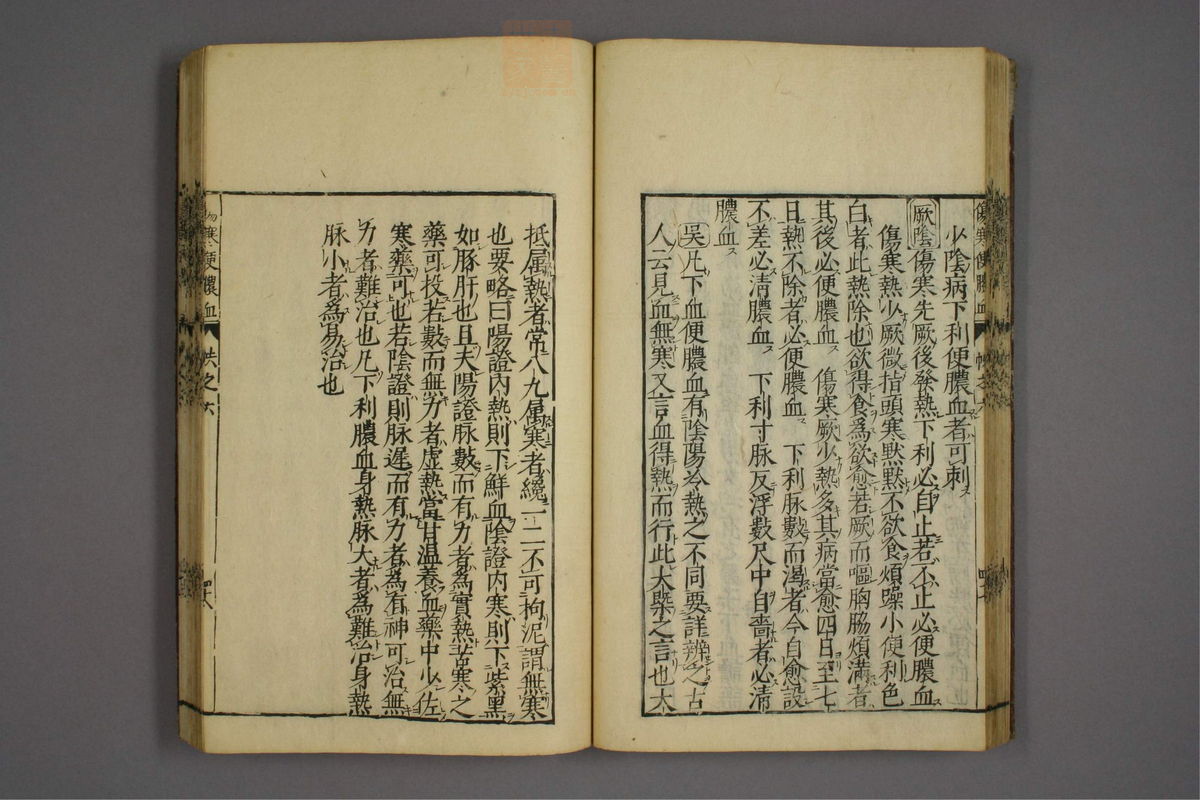 少陰病下利便膿血者可刺
厥陰傷寒先厥後發熱下利必自止若不止必便膿血
傷寒熱少厥微指頭寒默默不欲食煩躁小便利色
白者此熱除也欲得食為欲愈若厥而嘔胸脇煩滿者
其後必便膿血 傷寒厥少熱多其病當愈四日至七
日熱不除者必便膿血 下利脉數而渴者今自愈設
不差必清膿血 下利寸脉反浮數尺中自嗇者必清
膿血
吳凡下血便膿血有陰陽冷熱之不同要詳辨之古
人云見血無寒又言血得熱而行此大槩之言也大
抵属熱者常八九属寒者纔一二不可拘泥謂無寒
也要略曰陽證內熱則下鮮血陰證內寒則下紫黑
如豚肝也且夫陽證脉數而有力者為實熱苦寒之
藥可投若數而無力者虛熱當甘温養血藥中少佐
寒藥可也若陰證則脉遲而有力者為有神可治無
力者難治也凡下利膿血身熱脉大者為難治身熱
脉小者為易治也
傷寒便膿血
寒便膿血
之六